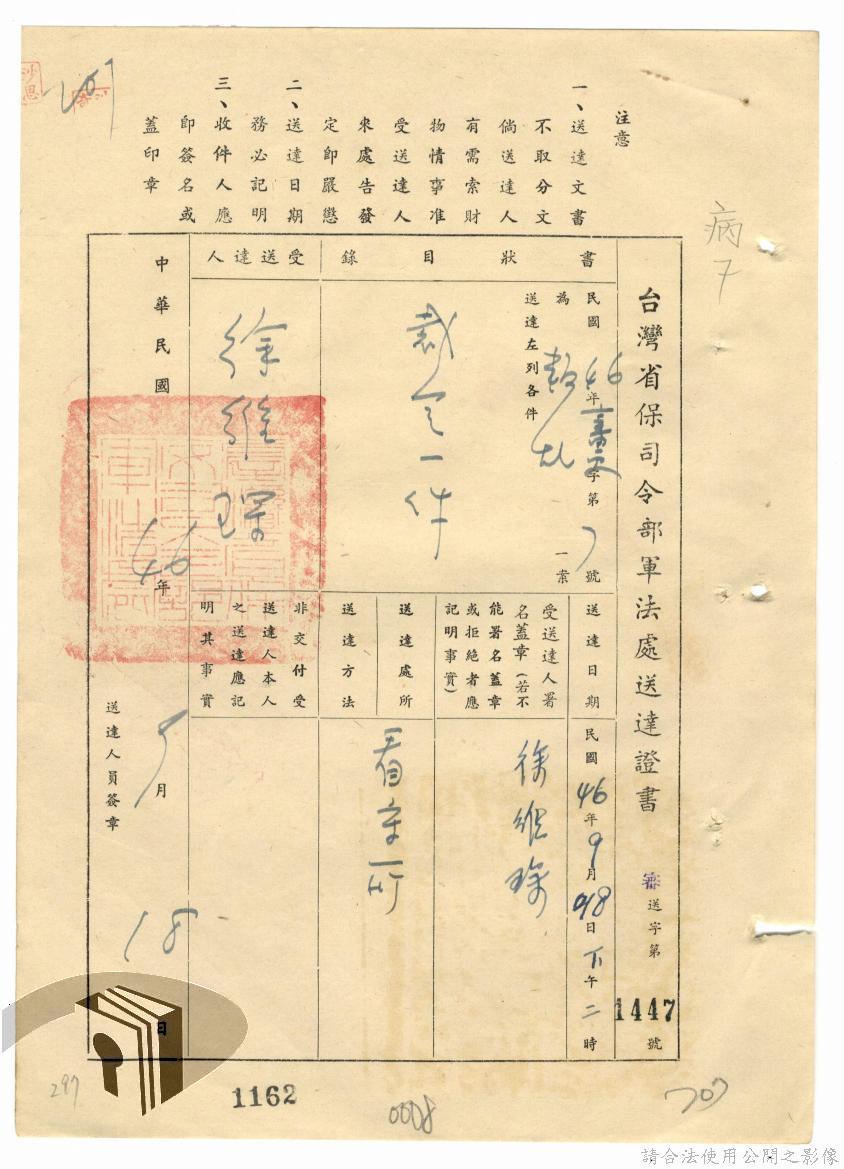 注意
一、送達文書
不取分文
倘送達人
有需索財
物情事准
受送達人
來處告發
定即嚴懲
二、送達日期
務必記明
三、收件人應
即簽名或
蓋印章
病
台灣省保司令部軍法處送達證書 審送字第1447號
書狀目錄
民國46年審更字第7號
為叛亂一案
送達左列各件
裁定一件
受送達人
徐維琛
送達日期
民國46年9月18日下午二時
受送達人署
名蓋章(若不
能署名蓋章
或拒絕者應
記明事實)
徐維琛
送達處所
看守所
送達方法
非交付受
送達人本人
之送達應記
明其事實
中華民國46年9月18日
送達人員簽章
297
1162
0008
707
請合法使用公開之影像